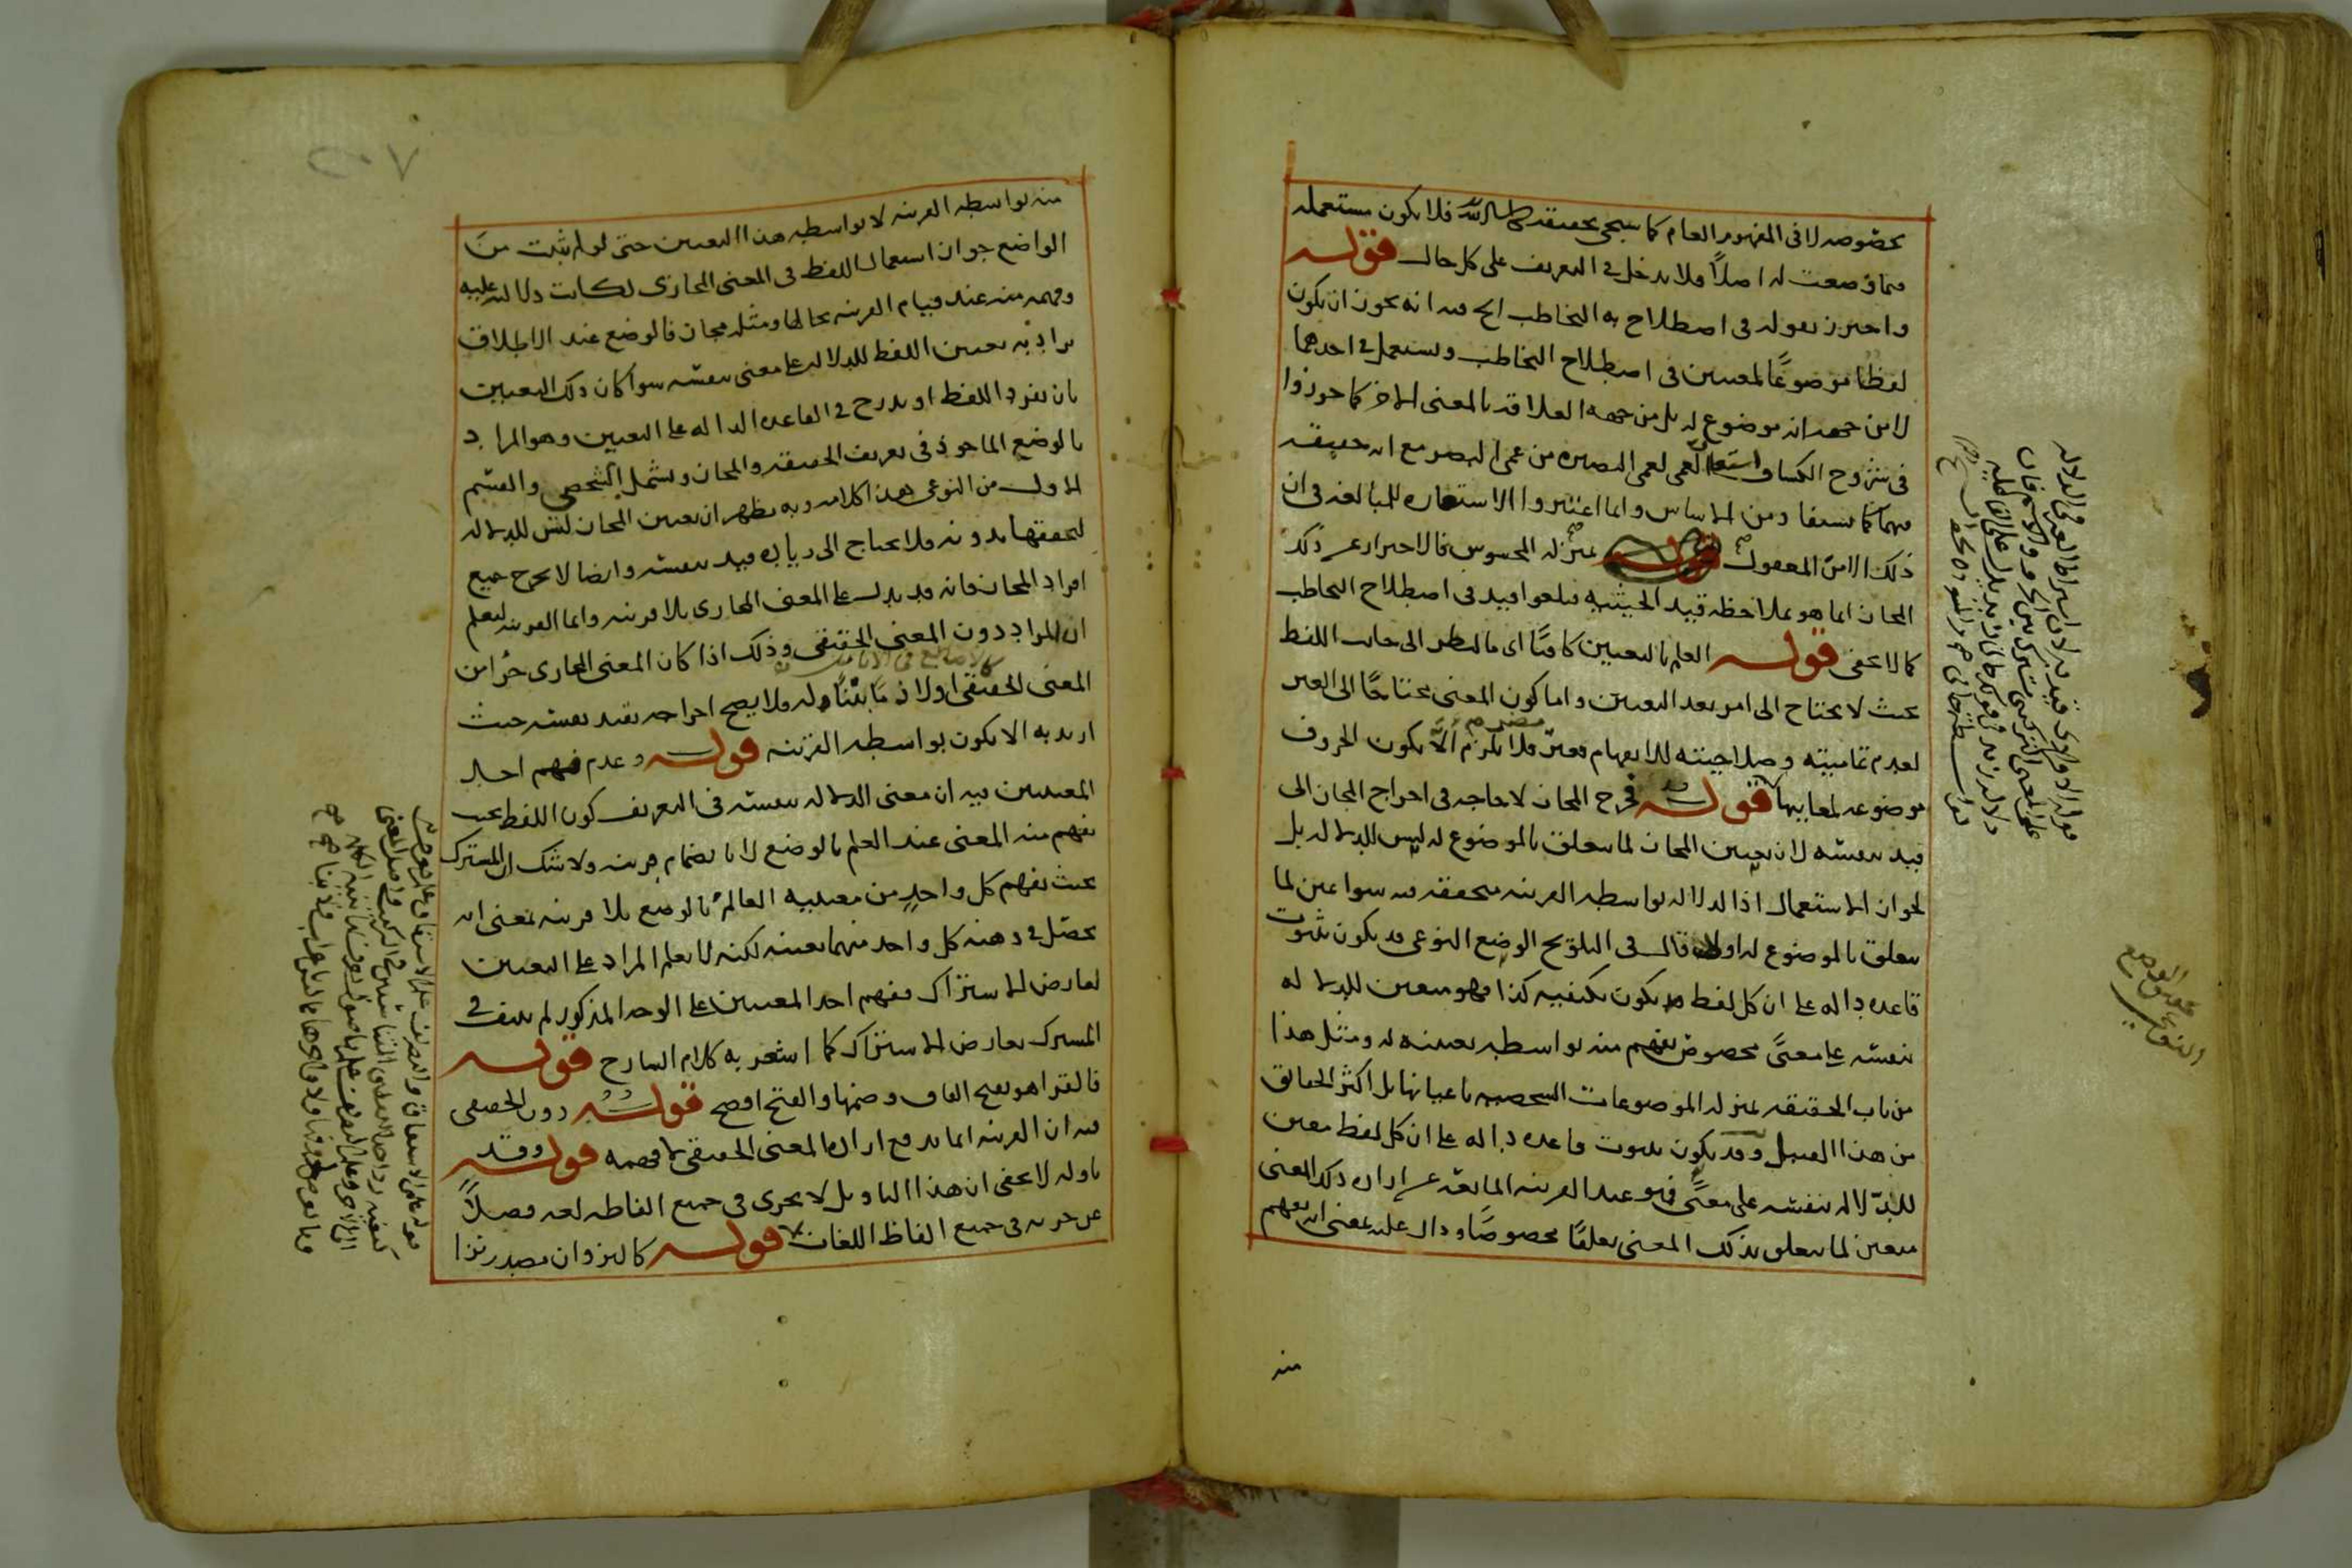 بخصوصه لا فى المفهوم العام كما سيجى تحقيقه ان شاء الله فلا يكون مستعمله
فيما وضعت له اصلاً فلا يدخل فى التعريف على كل حال قوله
واحترز بقوله فى اصطلاح به التخاطب الخ فيه انه يجوز ان يكون
لفظاً موضوعاً لمعنيين فى اصطلاح التخاطب ويستعمل فى احدهما
لا من جهة انه موضوع له بل من جهة العلاقة بالمعنى الاخر كما جوزوا
فى شروح الكشاف استعارة العمى لعمى البصيرة من عمى البصر مع انه حقيقة
فيهما كما يستفاد من الاساس وانما اعتبروا الاستعارة للمبالغة فى ان
ذلك الامر المعقول بمنزلة المحسوس فالاحتراز عن ذلك
المجاز انما هو بملاحظة قيد الحيثية فيلغو قيد فى اصطلاح التخاطب
كما لا يخفى قوله العلم بالتعيين كافيًا اى بالنظر الى جانب اللفظ
بحيث لا يحتاج الى امر بعد التعيين واما كون المعنى محتاجًا الى الغير
لعدم تماميته وصلاحيته للانفهام فغير مضر فلا يلزم الّا يكون الحروف
موضوعة لمعانيها قوله فخرج المجاز لا حاجة فى اخراج المجاز الى
قيد بنفسه لان تعيين المجاز لما يتعلق بالموضوع له ليس للدلالة بل
لجواز الاستعمال اذ الدلالة بواسطة القرينة متحققة فيه سوا عين لما
يتعلق بالموضوع له اولا قال فى التلويح الوضع النوعى قد يكون بثبوت
قاعدة دالة على ان كل لفظ يكون بكيفية كذا فهو متعين للدلالة
بنفسه على معنًى مخصوص يفهم منه بواسطة تعينه له ومثل هذا
من باب الحقيقة بمنزلة الموضوعات الشخصية باعيانها بل اكثر الحقايق
من هذا القبيل وقد يكون بثبوت قاعدة دالة على ان كل لفظ معين
للدّلالة بنفسه على معنًى فهو عند القرينة المانعة عن ارادة ذلك المعنى
متعين لما يتعلق بذلك المعنى تعلقًا مخصوصًا ودال عليه بمعنى انه يفهم
منه
منه بواسطة القرينة لا بواسطة هذا التعيين حتى لو لم يثبت من
الواضع جواز استعمال اللفظ فى المعنى المجازى لكانت دلالته عليه
وفهمه منه عند قيام القرينة بحالها ومثله مجاز فالوضع عند الاطلاق
يراد به تعيين اللفظ للدلالة على معنى بنفسه سوا كان ذلك التعيين
بان يفرد اللفظ او يدرج فى القاعدة الدالة على التعيين وهو المراد
بالوضع الماخوذ فى تعريف الحقيقة والمجاز ويشمل الشخصى والقسم
الاول من النوعى هذا كلامه وبه يظهر ان تعيين المجاز ليس للدلالة
لتحققها بدونه فلا يحتاج الى زيادة قيد بنفسه وايضا لا يخرج جميع
افراد المجاز فانه قد يدل على المعنى المجازى بلا قرينة وانما القرينة ليعلم
ان المراد دون المعنى الحقيقى وذلك اذا كان المعنى المجازى جزا من
المعنى الحقيقى او لازمًا بيّنًا له فلا يصح اخراجه بقيد بنفسه حيث
اريد به الا يكون بواسطة القرينة قوله وعدم فهم احد
المعنيين فيه ان معنى الدلالة بنفسه فى التعريف كون اللفظ بحيث
يفهم منه المعنى عند العلم بالوضع لا بانضمام قرينة ولا شك ان المشترك
بحيث يفهم كل واحدٍ من معنييه العالمُ بالوضع بلا قرينة بمعنى انه
يحصّل فى ذهنه كل واحد منهما بعينه لكنه لا يعلم المراد على التعيين
لعارض الاشتراك ففهم احد المعنيين على الوجه المذكور لم ينتف فى
المشترك بعارض الاشتراك كما اشعر به كلام الشارح قوله
فالقرا هو بفتح القاف وضمها والفتح افصح قوله دون الحقيقى
فيه ان القرينة انما تدفع ارادة المعنى الحقيقى لا فهمه قوله وقد
تاوله لا يخفى ان هذا التاويل لا يجرى فى جميع الفاظ لغة فضلًا
عن جريه فى جميع الفاظ اللغات قوله كالنزوان مصدر نزا